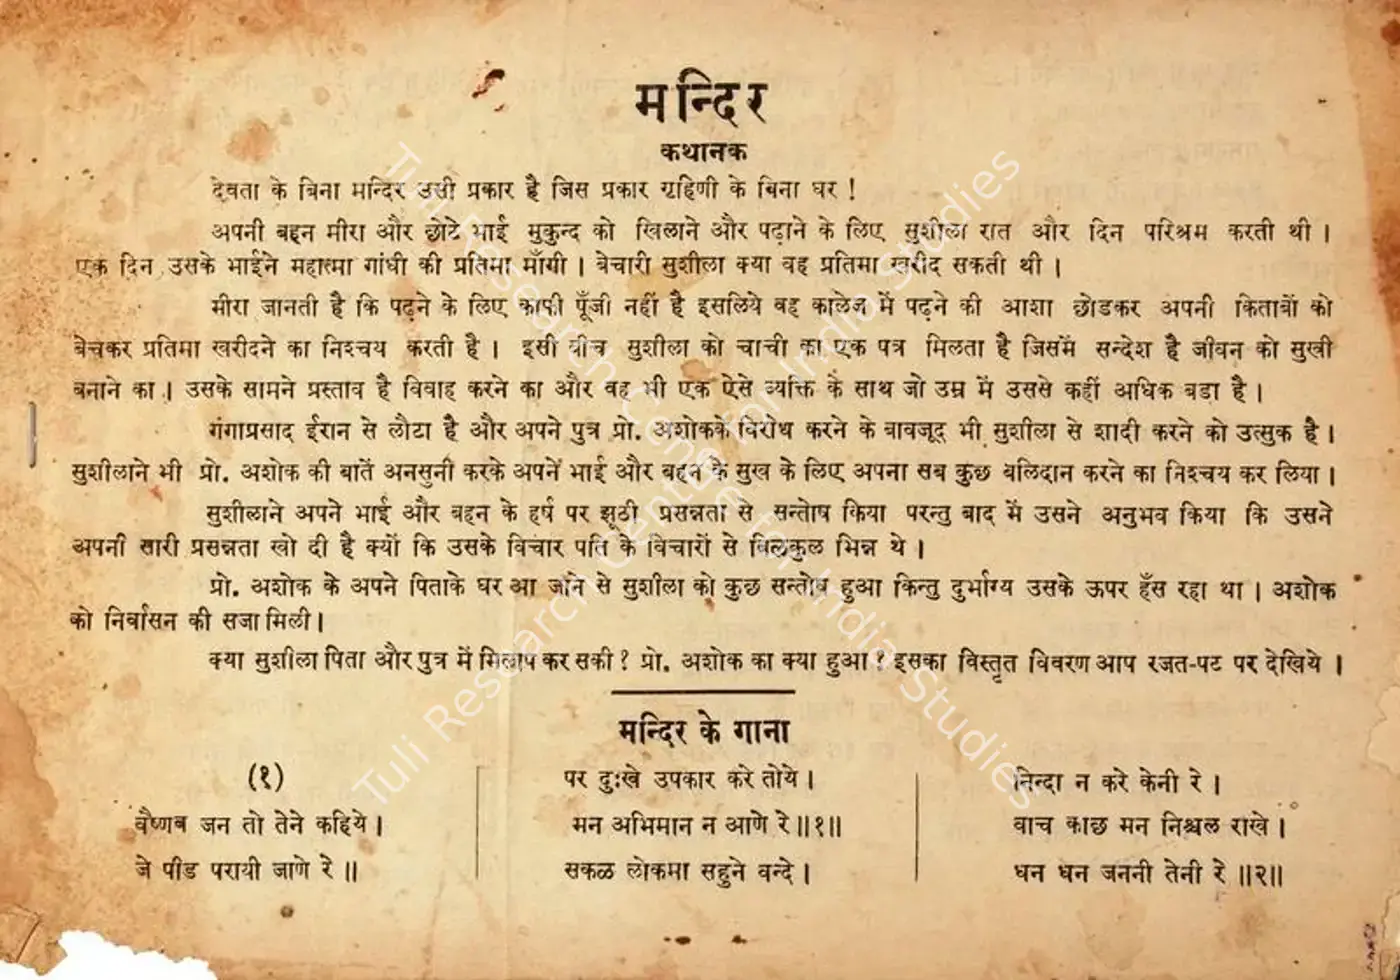 मन्दिर
कथानक
देवता के बिना मन्दिर उसी प्रकार है जिस प्रकार गृहिणी के बिना घर !
अपनी बहन मीरा और छोटे भाई मुकुन्द को खिलाने और पढ़ाने के लिए सुशीला रात और दिन परिश्रम करती थी ।
एक दिन उसके भाईने महात्मा गांधी की प्रतिमा माँगी । बेचारी सुशीला क्या वह प्रतिमा खरीद सकती थी ।
मीरा जानती है कि पढ़ने के लिए काफी पूँजी नहीं है इसलिये वह कालेज में पढ़ने की आशा छोडकर अपनी किताबों को
बेचकर प्रतिमा खरीदने का निश्चय करती है । इसी बीच सुशीला को चाची का एक पत्र मिलता है जिसमें सन्देश है जीवन को सुखी
बनाने का । उसके सामने प्रस्ताव है विवाह करने का और वह भी एक ऐसे व्यक्ति के साथ जो उम्र में उससे कहीं अधिक बडा है ।
गंगाप्रसाद ईरान से लौटा है और अपने पुत्र प्रो. अशोकके विरोध करने के बावजूद भी सुशीला से शादी करने को उत्सुक है ।
सुशीलाने भी प्रो. अशोक की बातें अनसुनी करके अपने भाई और बहन के सुख के लिए अपना सब कुछ बलिदान करने का निश्चय कर लिया ।
सुशीलाने अपने भाई और बहन के हर्ष पर झूठी प्रसन्नता से सन्तोष किया परन्तु बाद में उसने अनुभव किया कि उसने
अपनी सारी प्रसन्नता खो दी है क्यों कि उसके विचार पति के विचारों से बिलकुल भिन्न थे ।
प्रो. अशोक के अपने पिताके घर आ जाने से सुशीला को कुछ सन्तोष हुआ किन्तु दुर्भाग्य उसके ऊपर हँस रहा था । अशोक
को निर्वासन की सजा मिली ।
क्या सुशीला पिता और पुत्र में मिलाप कर सकी ? प्रो. अशोक का क्या हुआ ? इसका विस्तृत विवरण आप रजत-पट पर देखिये ।
मन्दिर के गाना
(१)
वैष्णव जन तो तेने कहिये ।
जे पीड परायी जाणे रे ॥
पर दुःखे उपकार करे तोये ।
मन अभिमान न आणे रे ॥१॥
सकळ लोकमा सहुने वन्दे ।
निन्दा न करे केनी रे ।
वाच काछ मन निश्चल राखे ।
धन धन जननी तेनी रे ॥२॥
Tuli Research Centre for India Studies
Tuli Research Centre for India Studies